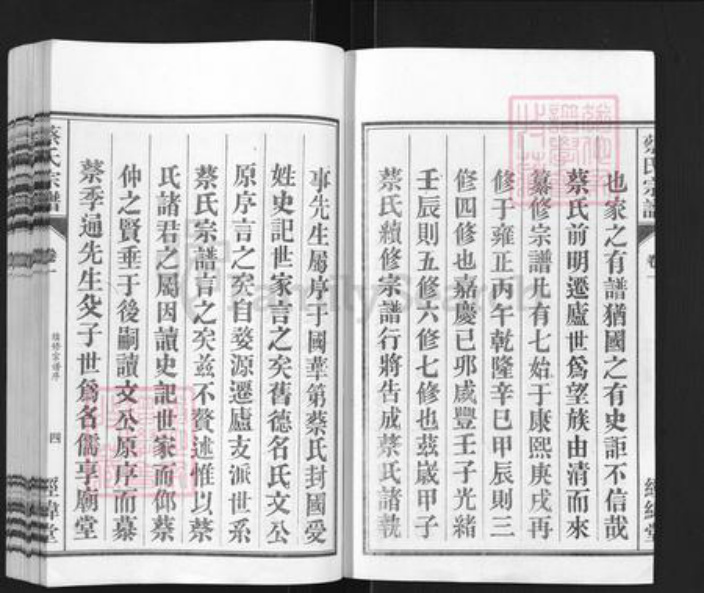 也家之有譜猶國之有史詎不信哉
蔡氏前明遷廬世爲望族由清而來
纂修宗譜凡有七始于康熙庚戌再
修于雍正丙午乾隆辛巳甲辰則三
修四修也嘉慶己卯咸豐壬子光緒
壬辰則五修六修七修也茲歲甲子
蔡氏續修宗譜行將告成蔡氏諸執
事先生屬序于國華第蔡氏封國受
姓史記世家言之矣舊德名氏文公
原序言之矣自婺源遷廬支派世系
蔡氏宗譜言之矣茲不贅述惟以蔡
氏諸君之屬因讀史記世家而仰蔡
仲之賢垂于後嗣讀文公原序而慕
蔡季通先生父子世爲名儒享廟堂
蔡氏宗譜
卷一
續修宗譜序
四
經緯堂
FamilySearch